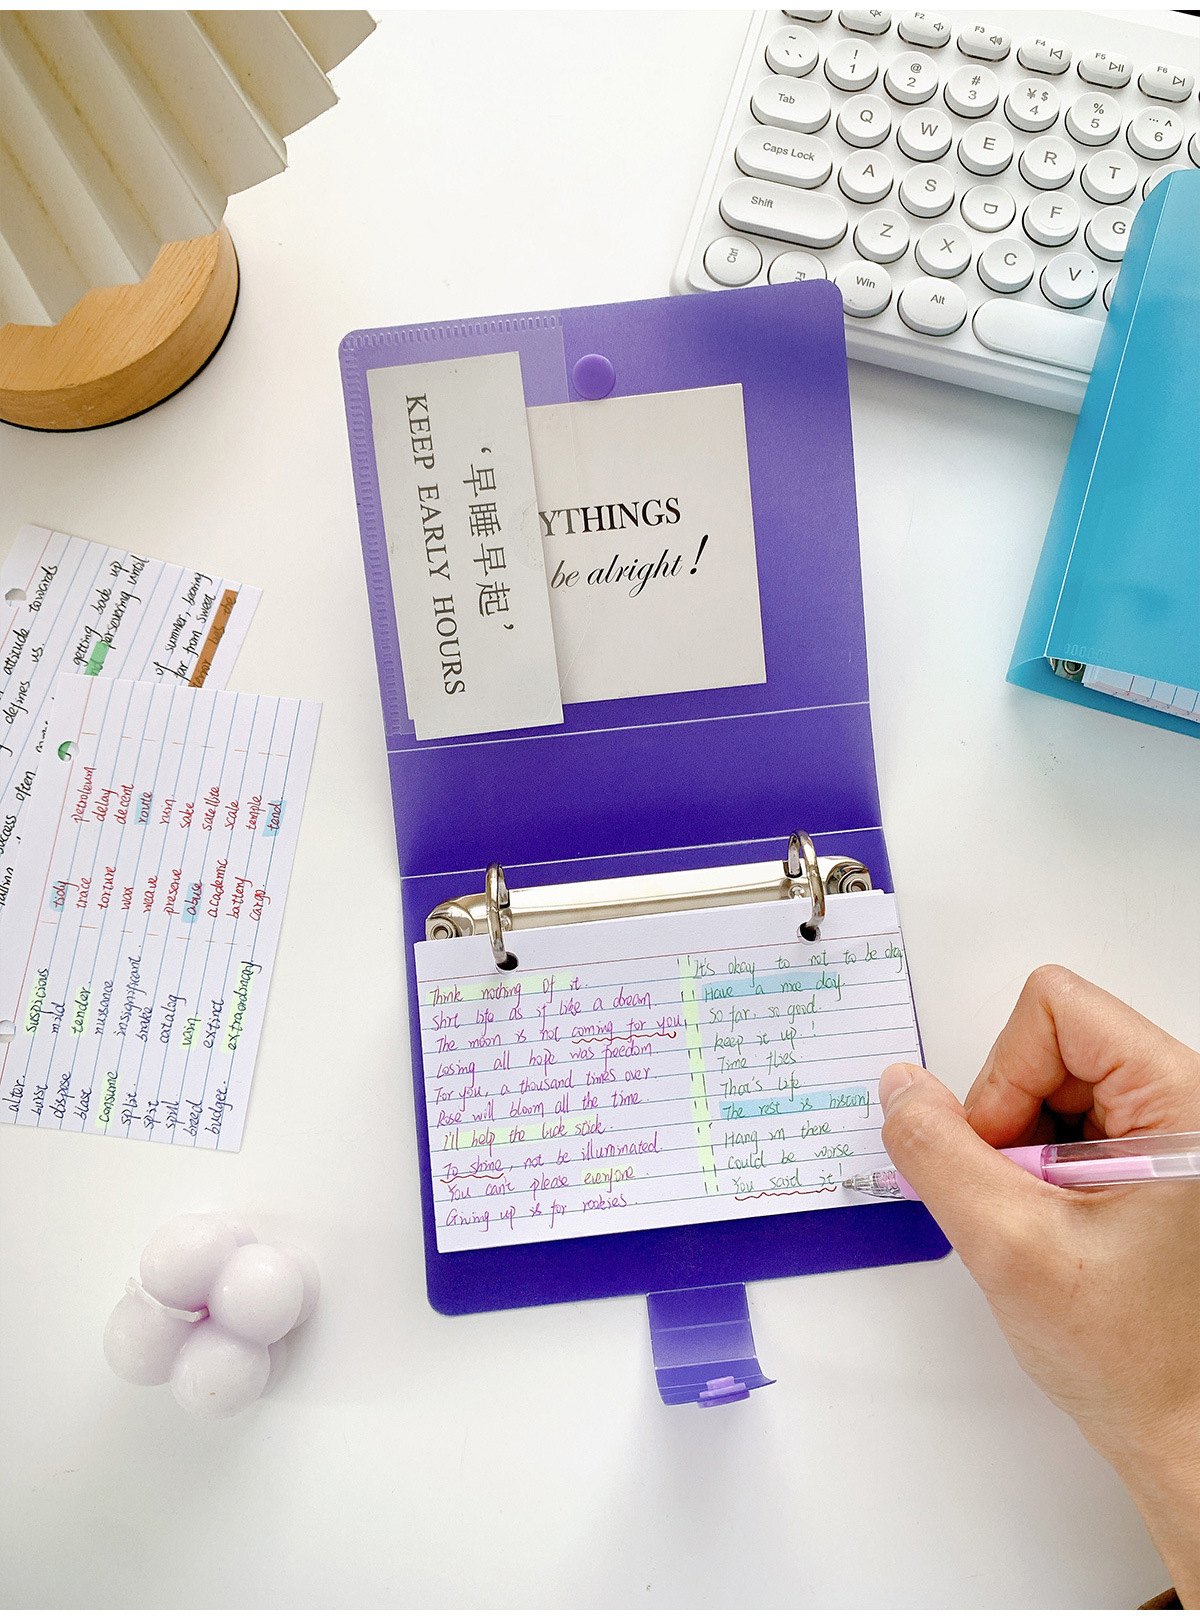 ~
!
1
@
2
#
3
¥ $
4
%
5
... ^
6
F2
F3
F4
F5
F6
Tab
Q
W
E
R
T
Caps Lock
A
S
D
F
G
Shift
Z
X
C
V
Ctrl
Fn
Win
Alt
KEEP EARLY HOURS
‘早睡早起’
YTHINGS
be alright !
Think nothing of it.
Shirt life as if like a dream.
The moon is not coming for you
Losing all hope was freedom.
For you, a thousand times over.
Rose will bloom all the time.
I'll help the luck stick.
To shine, not be illuminated.
You can't please everyone.
Giving up is for rookies.
It's okay to not to be okay
Have a nice day.
So far, so good.
keep it up!
Time flies.
That's life
The rest is history
Hang in there.
Could be worse.
You said it!
attitude towards
defines us.
success often
getting back up
persevering until
of summer, being
far from sweet
lies the
petroleum
delay
decent
route
ruin
sake
satellite
scale
temple
tend
tidy
trace
torture
wax
weave
preserve
abuse
academic
battery
cargo.
suspicious
mild
tender.
nuisance
insignificant.
brake
catalog
vain.
extinct
extraordinary
alter.
burst
dispose
blast
consume
split.
spit
spill
breed
budget.